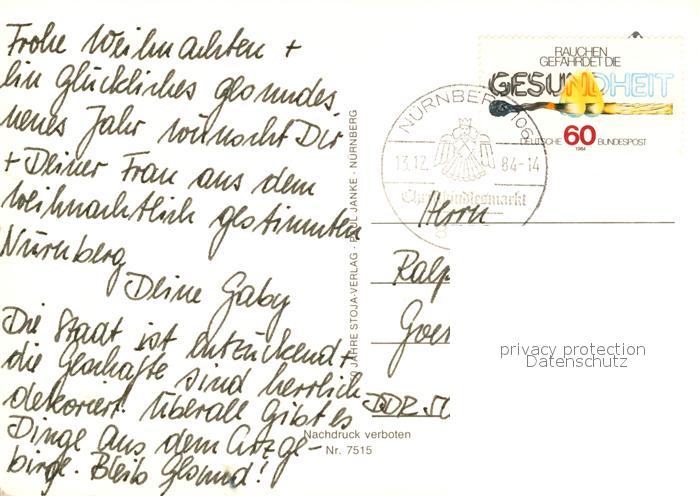 Frohe Weihnachten +
ein glückliches gesundes
neues Jahr wünscht Dir
+ Deiner Frau aus dem
weihnachtlich gestimmten
Nürnberg
Deine Gaby
Die Stadt ist entzückend +
die Geschäfte sind herrlich
dekoriert. Überall gibt es
Dinge aus dem Erzge-
birge. Bleib Gesund!
JAHRE STOJA-VERLAG · PAUL JANKE · NÜRNBERG
Nachdruck verboten
Nr. 7515
RAUCHEN
GEFÄHRDET DIE
GESUNDHEIT
DEUTSCHE 60 BUNDESPOST
1984
NÜRNBERG 106
13.12. 84-14
Christkindlesmarkt
Herrn
Ralp
Goe
DDR
privacy protection
Datenschutz